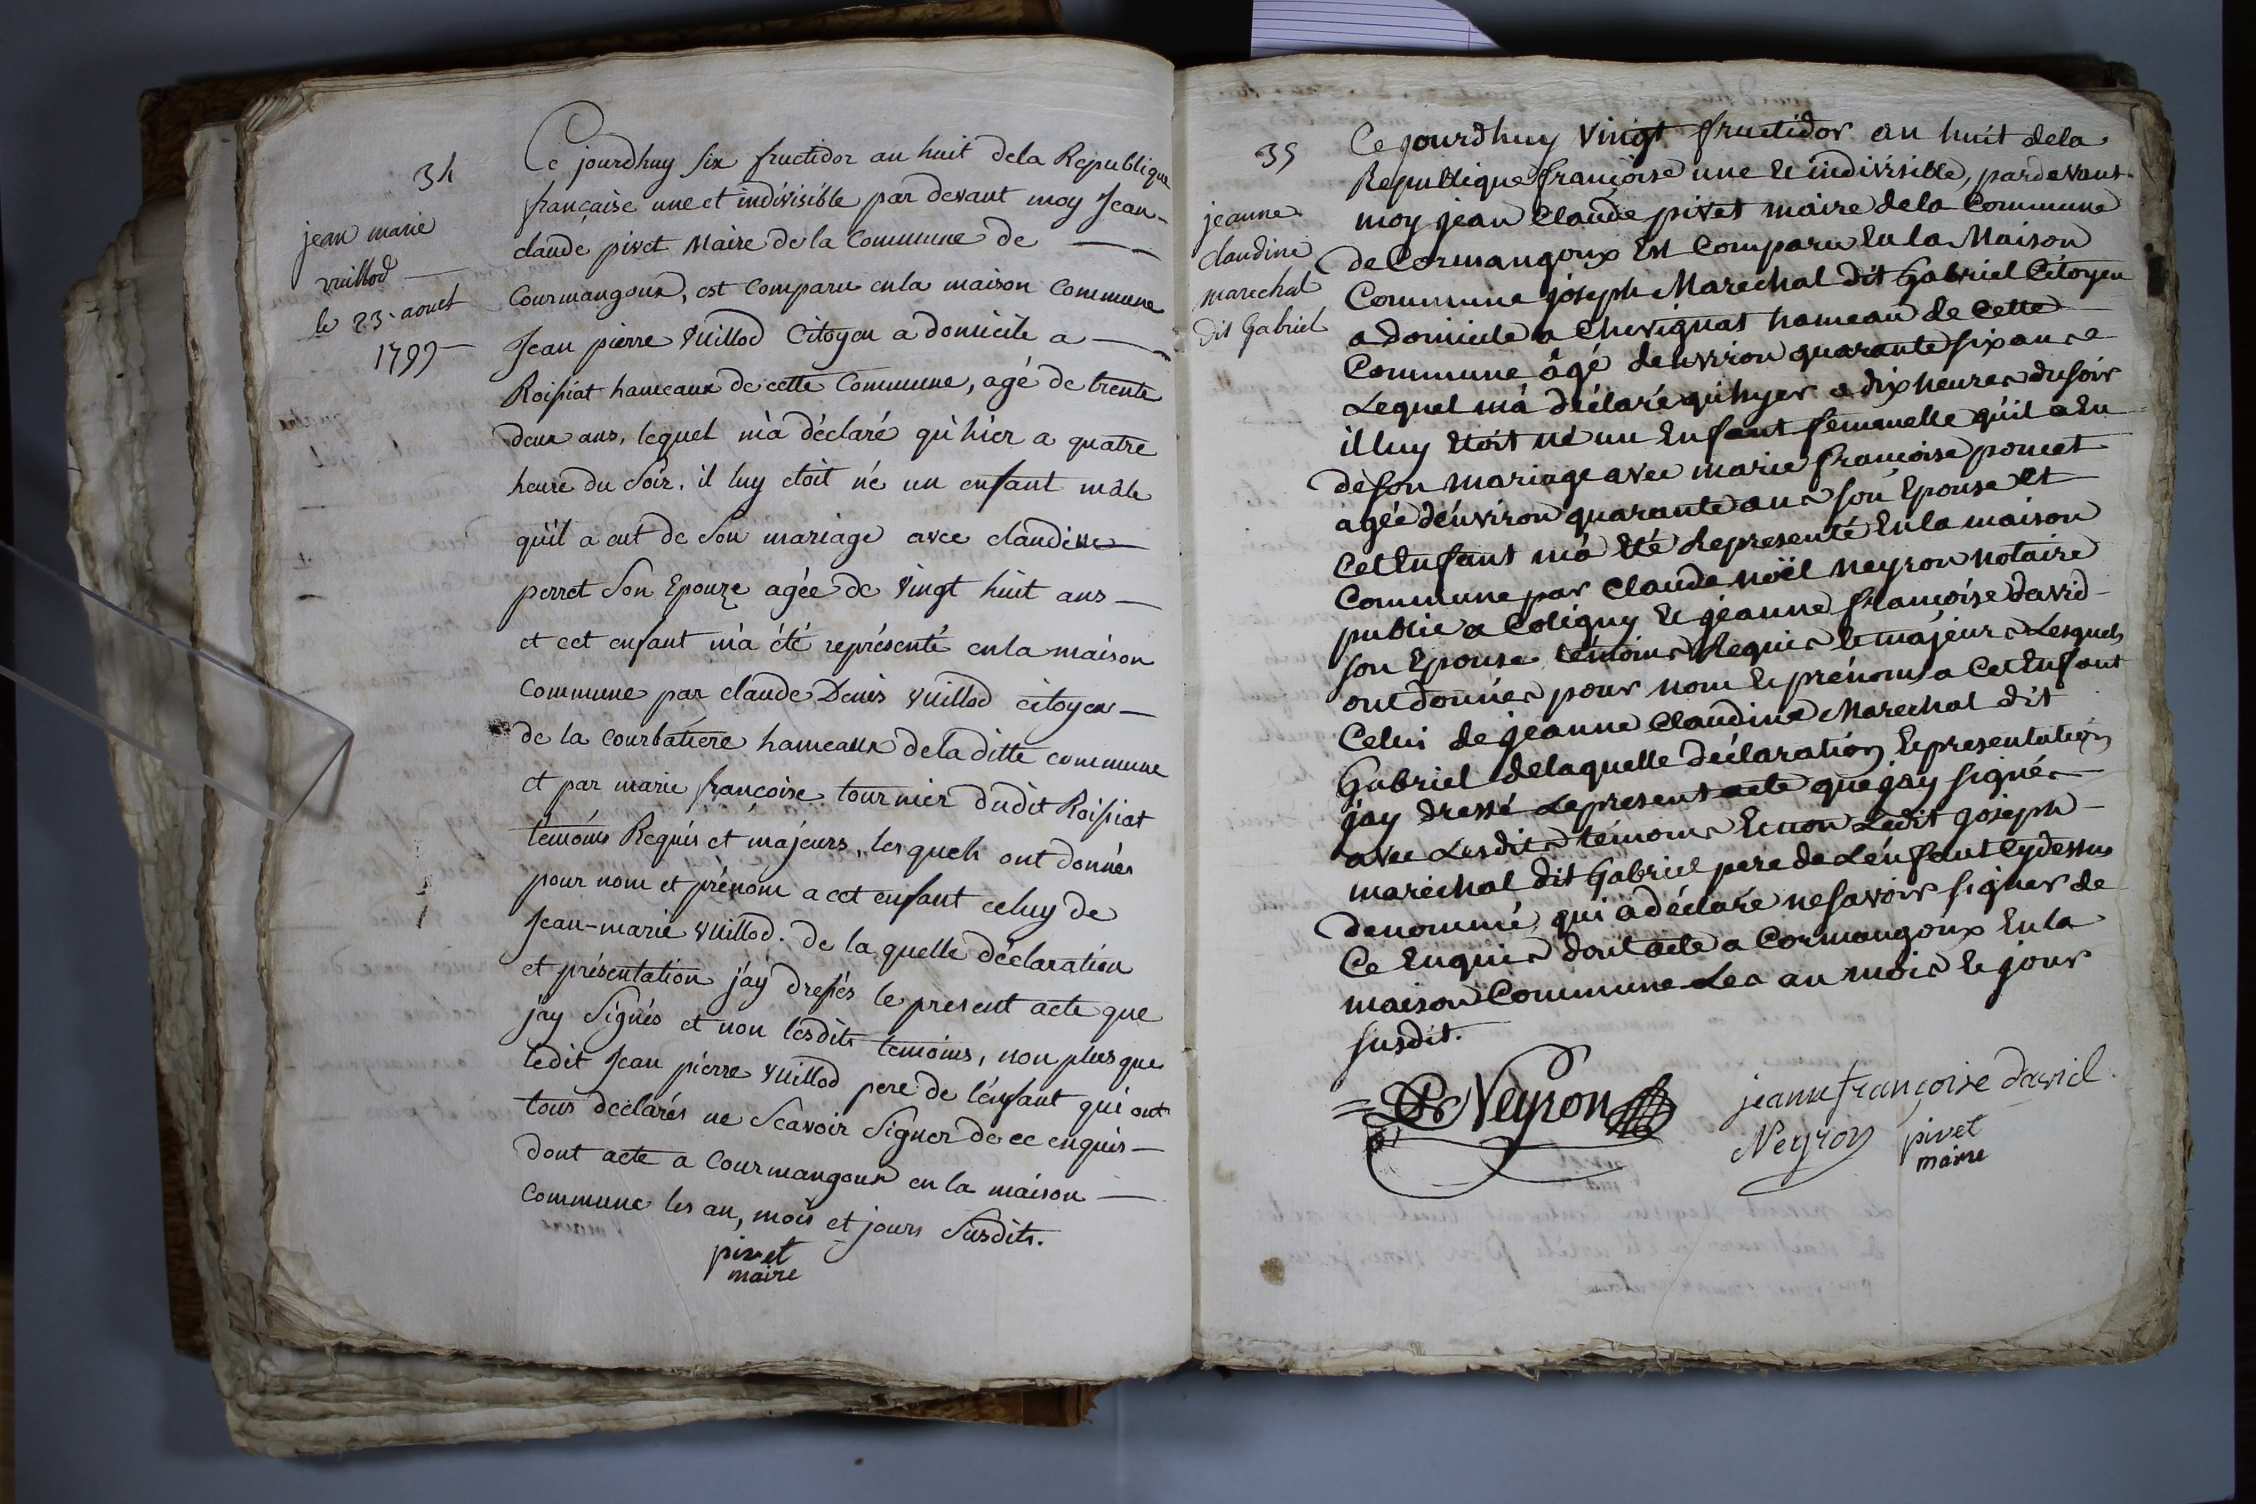 34
jean marie
vuillod
le 23. aoust
1799
Ce jourdhuy six fructidor an huit dela Republique
française une et indivisible par devant moy Jean-
claude pivet Maire de la Commune de
Courmangoux, est comparu en la maison commune
Jean pierre Vuillod Citoyen a domicile a
Roissiat hameaux de cette Commune, agé de trente
deux ans, lequel m'a déclaré qu'hier a quatre
heure du soir, il luy etoit né un enfant mâle
qu'il a eut de son mariage avec claudine
perret son Epouze agée de vingt huit ans
et cet enfant m'a été représenté en la maison
commune par claude Denis vuillod citoyen
de la courbatiere hameaux de la ditte commune
et par marie françoise tournier dudit Roissiat
temoins Requis et majeurs, lesquels ont donnés
pour nom et prénom a cet enfant celuy de
Jean-marie vuillod. de la quelle déclaration
et présentation j'ay dressés le present acte que
j'ay signés et non lesdits temoins, non plus que
ledit Jean pierre vuillod pere de l'enfant qui ont
tous déclarés ne sçavoir signer de ce enquis
dont acte a Courmangoux en la maison
commune les an, mois et jours susdits.
pivet
maire
35
jeanne
claudine
marechal
dit Gabriel
Ce jourdhuy vingt fructidor an huit dela
Republique françoise une et indivisible, pardevant
moy jean Claude pivet maire dela Commune
de Cormangoux Est Comparu En la Maison
Commune joseph Marechal dit Gabriel Citoyen
a domicile a Chevignat hameau de Cette
Commune âgé denviron quarante six ans
Lequel m'a déclaré qu'hyer a dix heures du soir
il luy Etoit né un Enfant femmelle qu'il a Eu
de son mariage avec marie françoise poncet
agée d'environ quarante ans son Epouse Et
Cet Enfant m'a Eté Representé En la maison
Commune par Claude noël neyron notaire
public a Coligny Et jeanne françoise david
son Epouse témoins Requis Et majeurs Lesquels
ont donnés pour nom Et prénom a Cet Enfant
Celui de jeanne Claudine Marechal dit
Gabriel de laquelle déclaration Et presentation
jay dressé Le present acte que jay signés
avec Lesdits témoins Et non Ledit joseph
maréchal dit Gabriel pere de L'énfant Cy dessus
denommé, qui a déclaré ne savoir signer de
Ce Enquis dont acte a Cormangoux En la
maison Commune Les an mois Et jour
susdit.
Neyron
jeanne françoise david
Neyron
pivet
maire